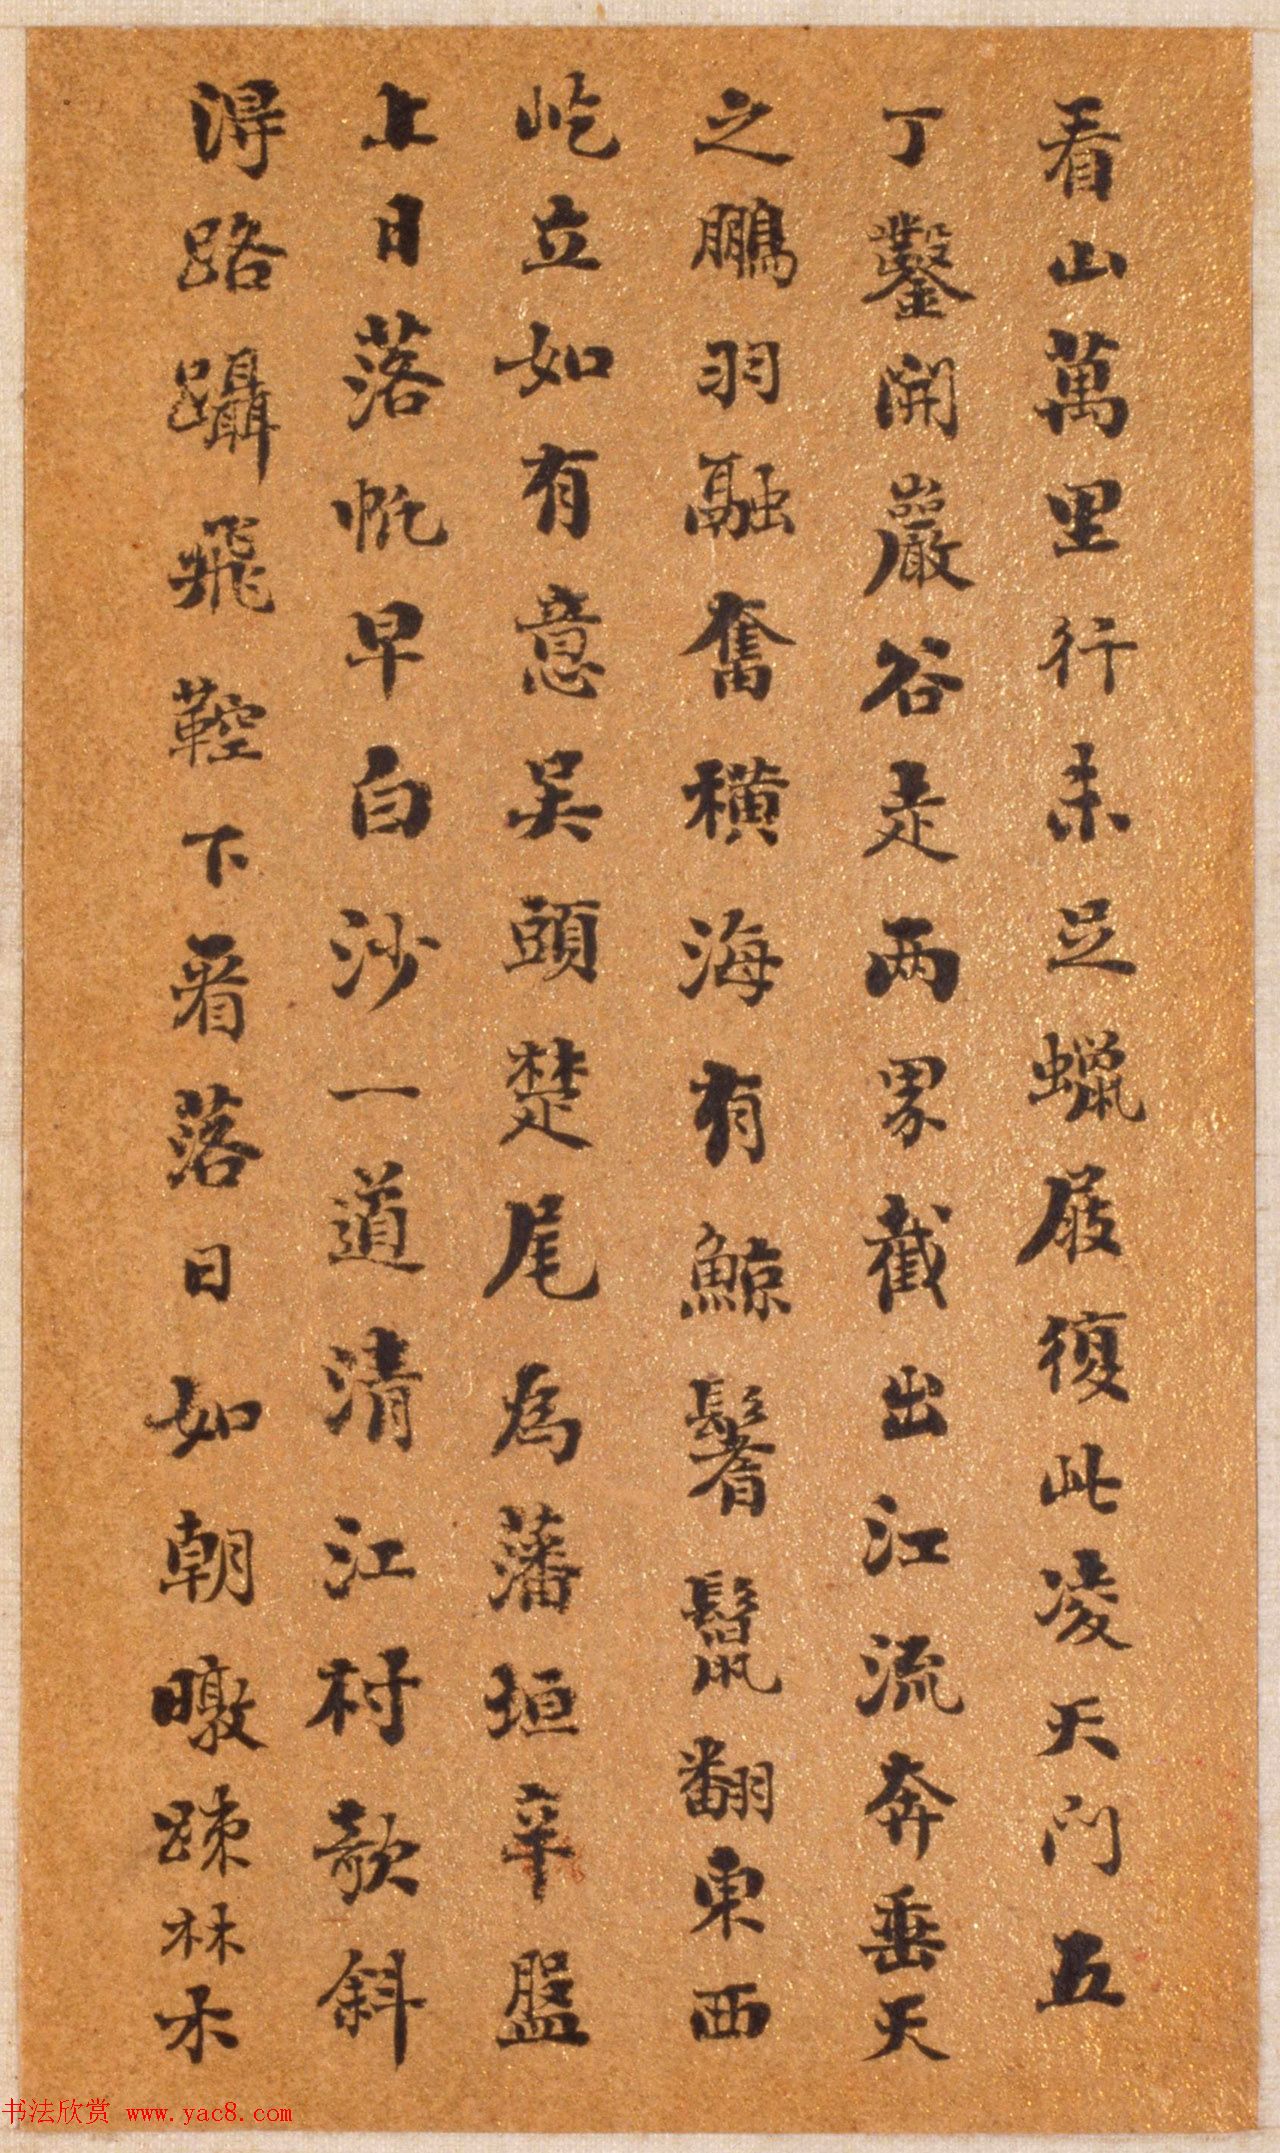 看山萬里行未足蠟屐復此凌天門五
丁鑿開巖谷走两界截出江流奔垂天
之鵬羽融奮橫海有鯨鬐鬣翻東西
屹立如有意吴頭楚尾為藩垣辛盤
上日落帆早白沙一道清江村欹斜
得路躡飛鞚下看落日如朝暾踈林木
书法欣赏 www.yac8.com